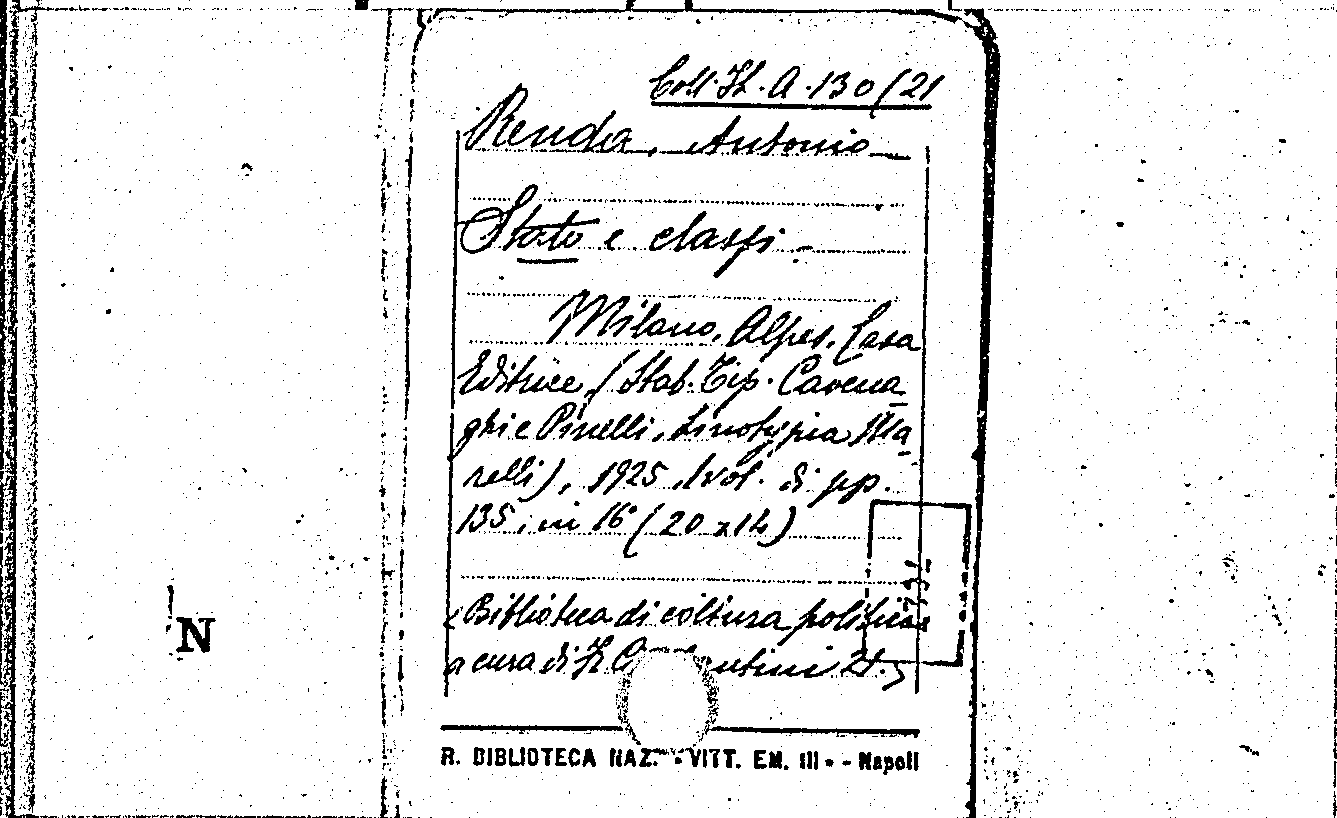 Coll. It. A. 130 (21
Renda, Antonio
Stato e classi.
Milano, Alpes, Casa
Editrice, (Stab. Tip. Cavena
ghi e Pinelli, Linotypia Ma
relli), 1925, 1 vol. di pp.
135, in 16° (20 x 14)
«Biblioteca di coltura politica
a cura di F. 21.»
R. BIBLIOTECA NAZ. VITT. EM. III - Napoli
N